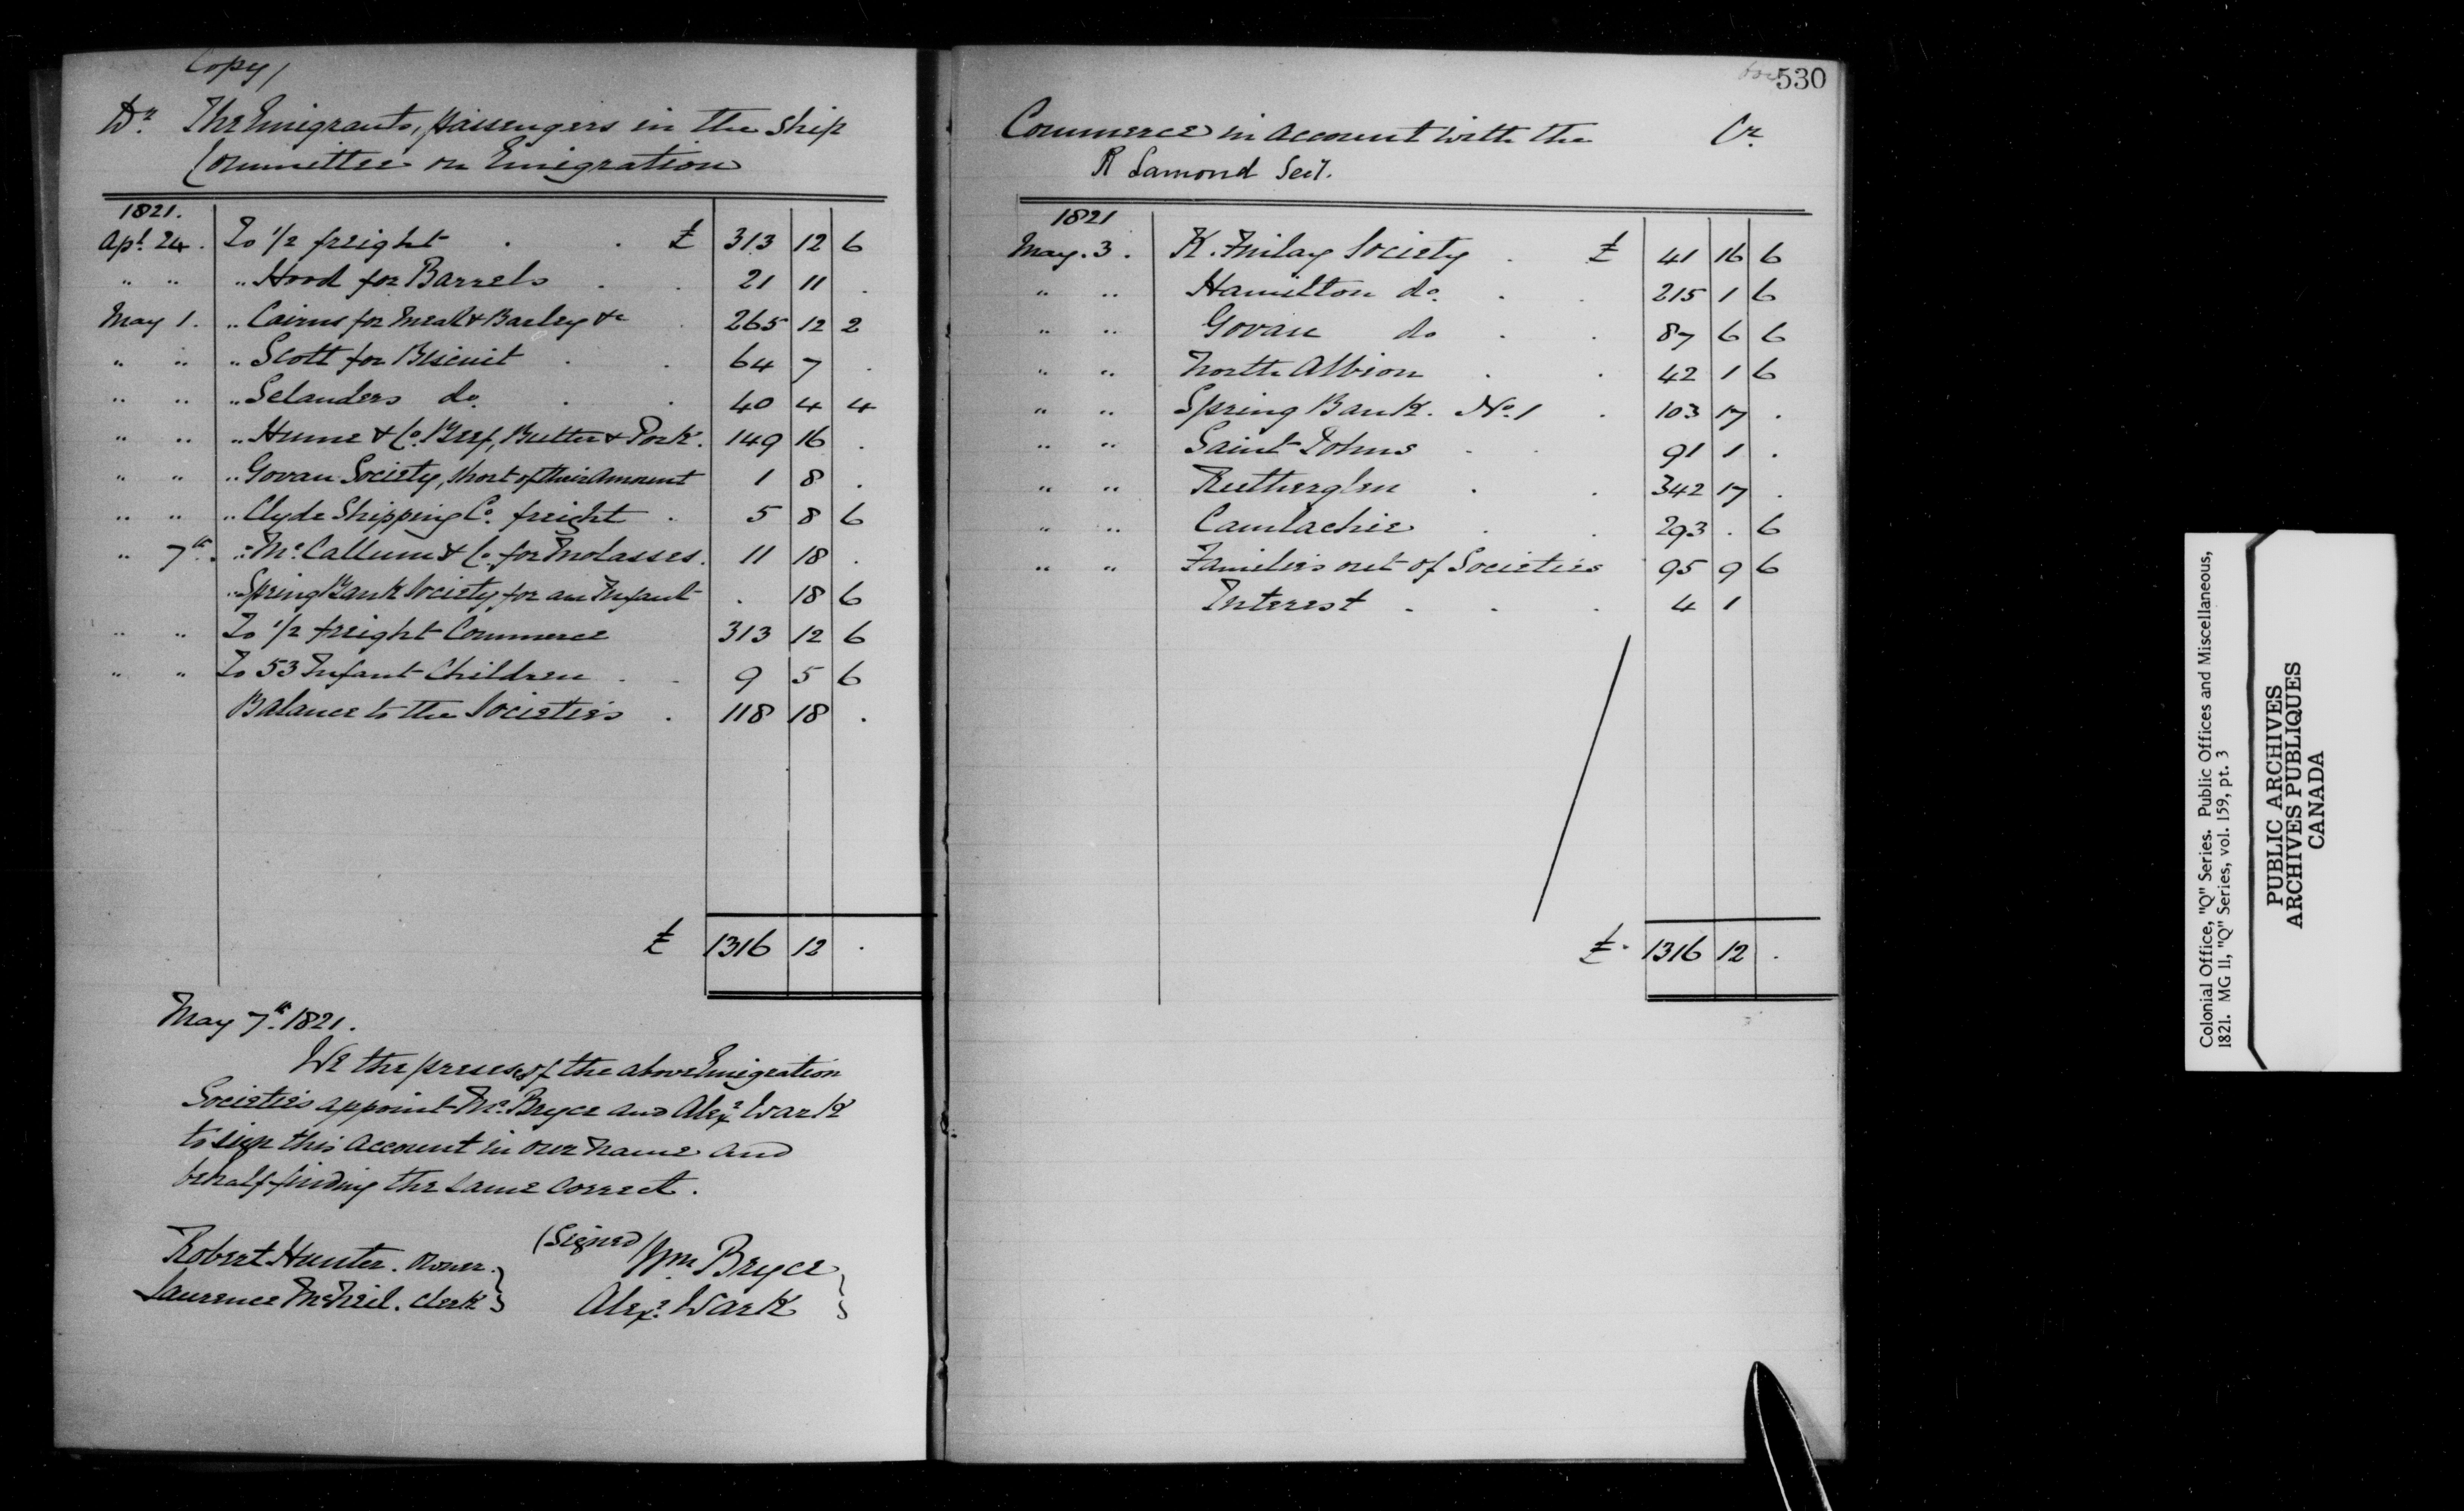 Copy/
Dr. The Emigrants, passengers in the Ship
Committee on Emigration
1821.
Apl. 24. To 1/2 freight . . £ 313 12 6
" " " Hood for Barrels . . 21 11 .
May 1. " Cairns for Meal & Barley &c . 265 12 2
" " " Scott for Biscuit . . 64 7 .
" " " Selanders do. . . 40 4 4
" " " Hume & Co. Beef, Butter & Pork. 149 16 .
" " " Govan Society, short of their Amount 1 8 .
" " " Clyde Shipping Co. freight . 5 8 6
" 7th. " McCallum & Co. for Molasses. 11 18 .
" Spring Bank Society for an Infant . 18 6
" " To 1/2 freight Commerce 313 12 6
" " To 53 Infant Children . . 9 5 6
Balance to the Societies . 118 18 .
£ 1316 12 .
May 7th. 1821.
We the preses of the above Emigration
Societies appoint Mr. Bryce and Alexr. Wark
to sign this account in our name and
behalf finding the same correct.
(Signed)
Robert Hunter. Owner. Wm Bryce
Laurence McNeil. Clerk Alexr. Wark
530
Commerce in account with the Cr.
R Lamond Secy.
1821
May. 3. K. Finlay Society . £ 41 16 6
" " Hamilton do. . . 215 1 6
" " Govan do . . 87 6 6
" " North Albion . . 42 1 6
" " Spring Bank. No. 1 . 103 17 .
" " Saint Johns . . 91 1 .
" " Rutherglen . . 342 17 .
" " Camlachie . . 293 . 6
" " Families out of Societies 95 9 6
Interest . . . 4 1
£. 1316 12 .
Colonial Office, "Q" Series. Public Offices and Miscellaneous,
1821. MG 11, "Q" Series, vol. 159, pt. 3
PUBLIC ARCHIVES
ARCHIVES PUBLIQUES
CANADA